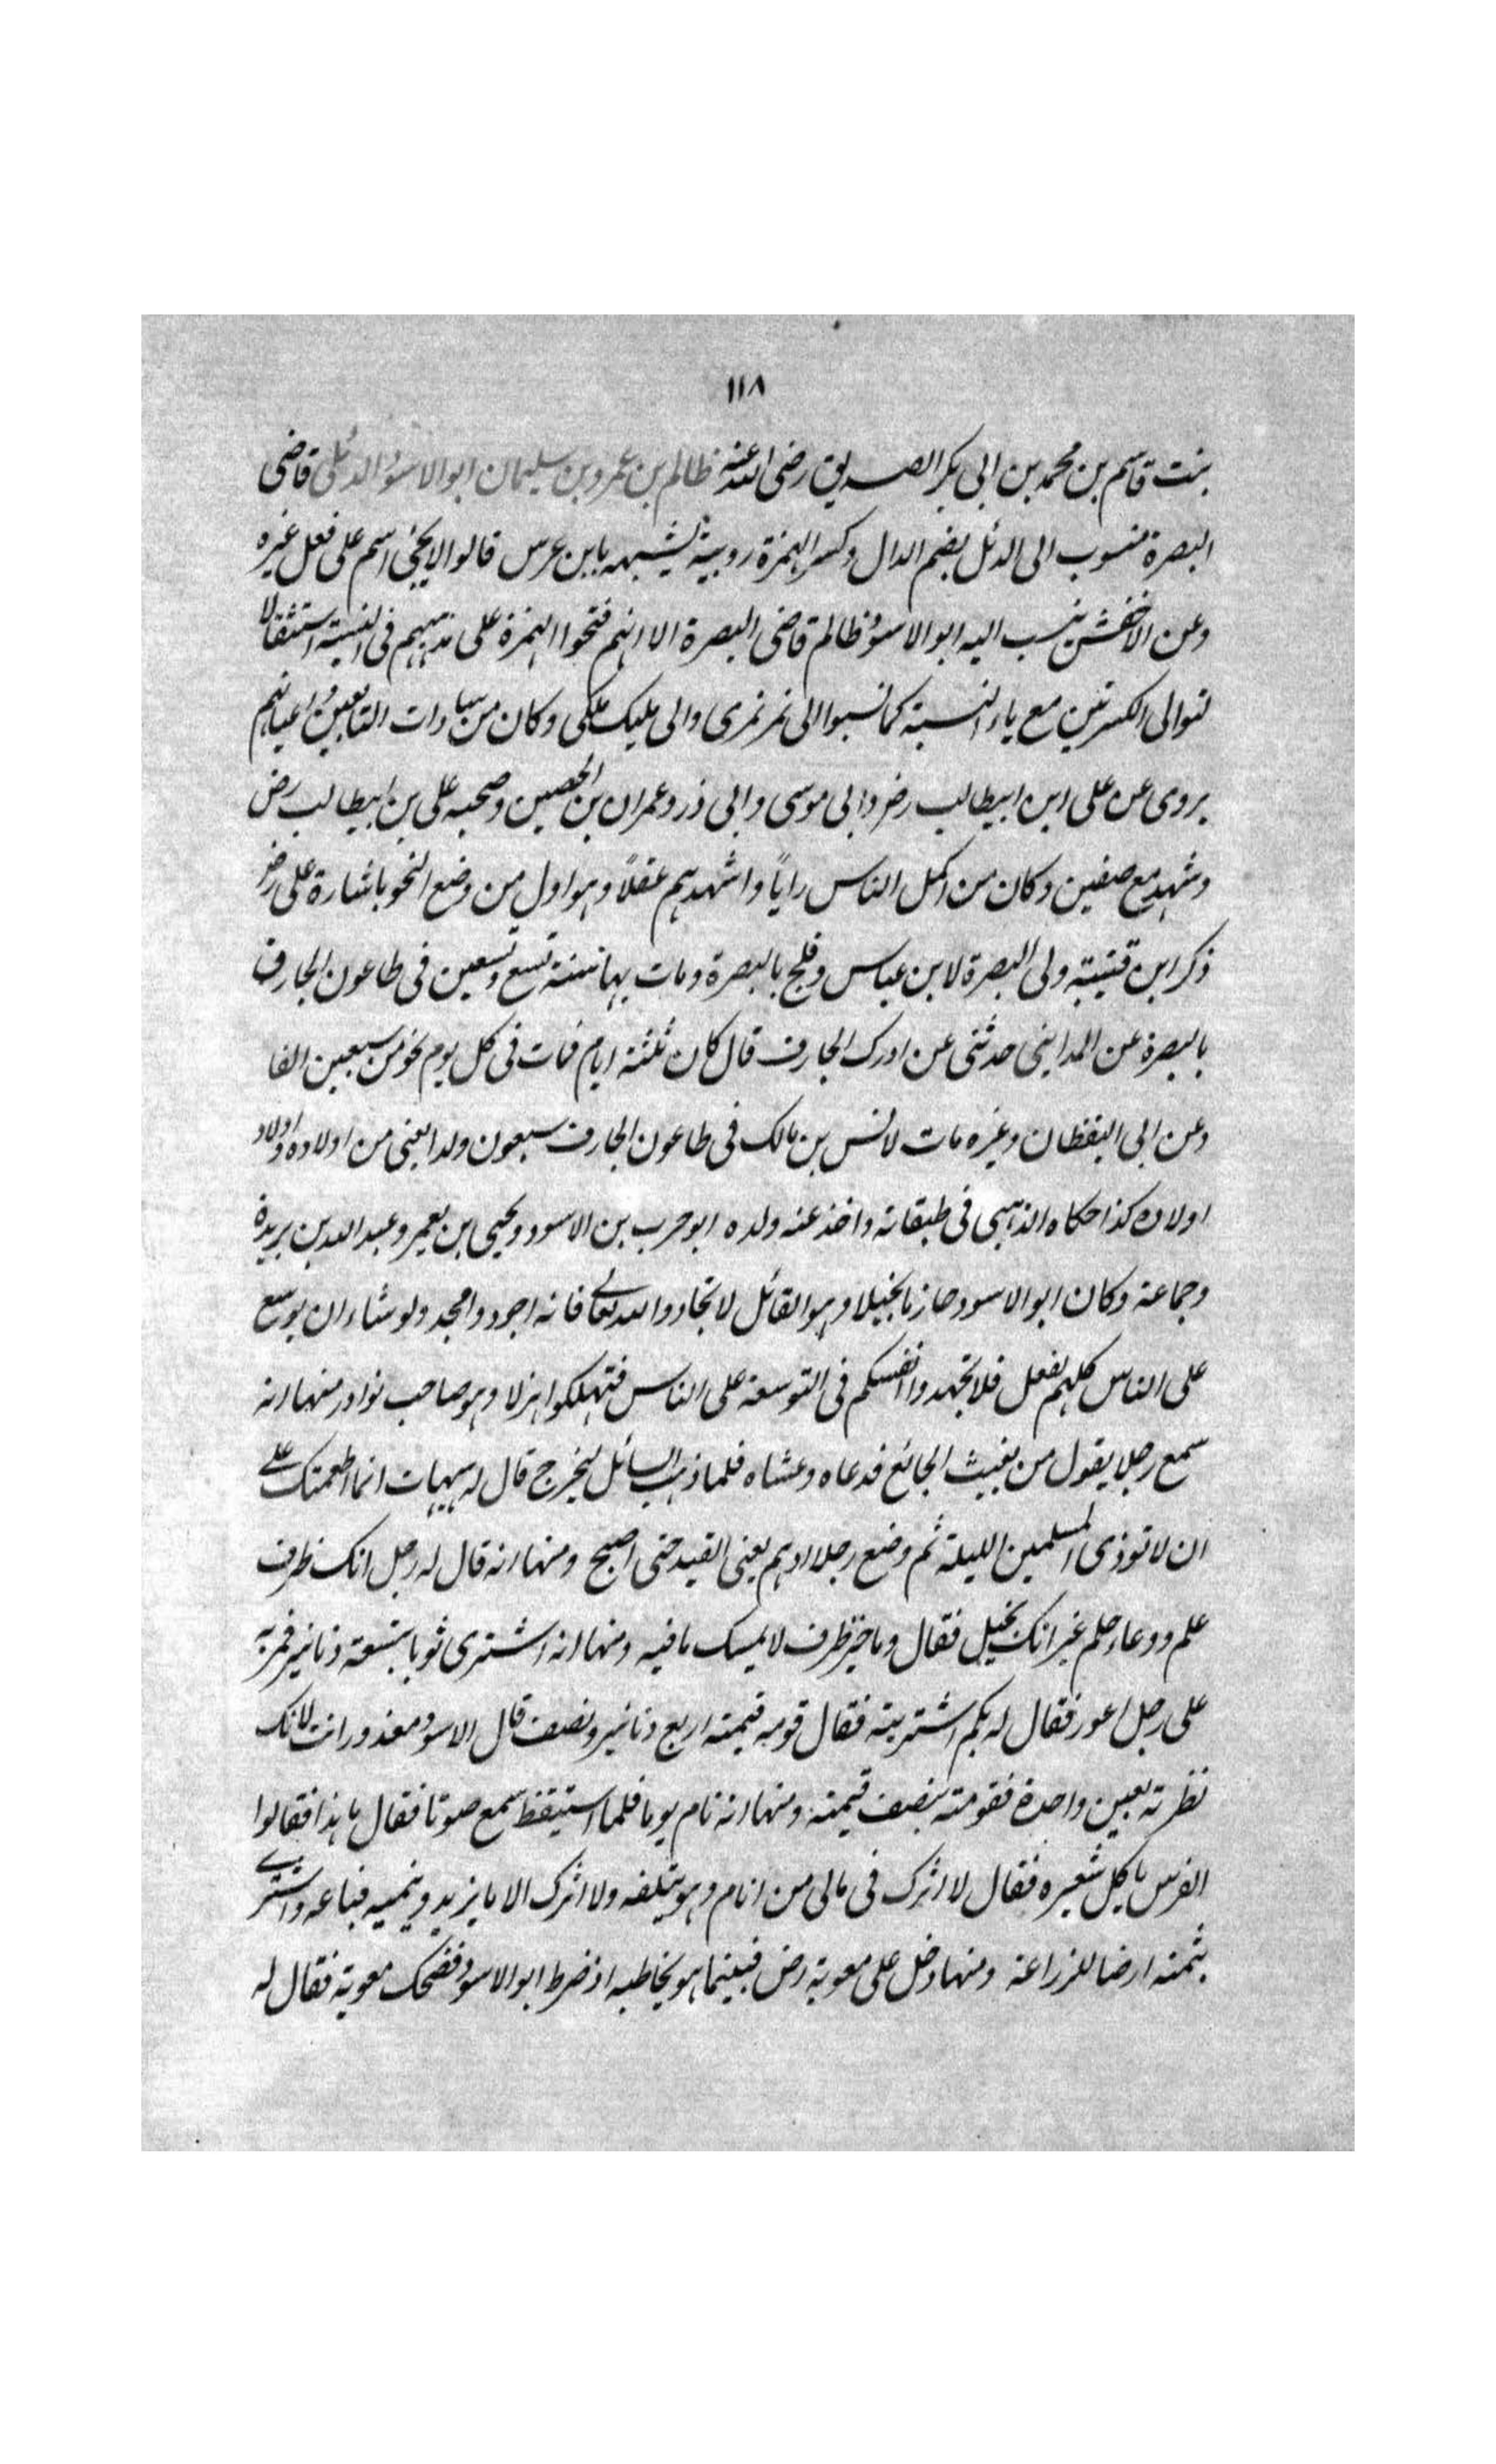 ١١٨
بنت قاسم بن محمد بن ابى بكر الصديق رضى الله عنه ظالم بن عمرو بن سليمان ابو الاسود الدئلى قاضى
البصرة منسوب الى الدئل بضم الدال وكسر الهمزة روبية يشبهه بابن عرس قالوا لا يجئ اسم على فعل غيره
وعن الاخفش ينسب اليه ابو الاسود ظالم قاضى البصرة الا انهم فتحوا الهمزة على مذهبهم فى النسبة استثقالا
لتوالى الكسرتين مع ياء النسبة كما نسبوا الى نمر نمرى والى مليك ملكى وكان من سادات التابعين واعيانهم
يروى عن على ابن ابيطالب رض وابى موسى وابى ذر وعمران بن الحصين وصحبه على بن ابيطالب رض
وشهد مع صفين وكان من اكمل الناس رايًا واشهدهم عقلًا وهو اول من وضع النحو باشارة على رض
ذكر ابن قتيبة ولى البصرة لابن عباس وفلج بالبصرة ومات بها سنة تسع وتسعين فى طاعون الجارف
بالبصرة عن المداينى حدثنى عن ادرك الجارف قال كان ثلثة ايام فمات فى كل يوم نحو من سبعين الفا
وعن ابى اليقظان وغيره مات لانس بن مالك فى طاعون الجارف سبعون ولدا يعنى من اولاده واولاد
اولاده كذا حكاه الذهبى فى طبقاته واخذ عنه ولده ابو حرب بن الاسود ويحيى بن يعمر وعبد الله بن بريدة
وجماعة وكان ابو الاسود حازما بخيلا وهو القائل لا تجادوا الله تعالى فانه اجود وامجد ولو شاء ان يوسع
على الناس كلهم لفعل فلا تجهدوا انفسكم فى التوسعة على الناس فتهلكوا هزلا وهو صاحب نوادر منها انه
سمع رجلا يقول من يغيث الجائع فدعاه وعشاه فلما ذهب السائل ليخرج قال له هيهات انما اطعمتك على
ان لا توذى المسلمين الليلة ثم وضع رجلا ادهم يعنى القيد حتى اصبح ومنها انه قال له رجل انك ظرف
علم ووعاء حلم غير انك بخيل فقال وما خير ظرف لا يمسك ما فيه ومنها انه اشترى ثوبا بتسعة دنانير فمر به
على رجل اعور فقال له بكم اشتريته فقال قومه قيمته اربع دنانير ونصف قال الاسود معذور انت لانك
نظرته بعين واحدة فقومته بنصف قيمته ومنها انه نام يوما فلما استيقظ سمع صوتا فقال ما هذا فقالوا
الفرس ياكل شعيره فقال لا اترك فى مالى من انام وهو يتلفه ولا اترك الا ما يزيد وينميه فباعه واشترى
بثمنه ارضا للزراعة ومنها دخل على معوية رض فبينما هو يخاطبه اذ ضرط ابو الاسود فضحك معوية فقال له